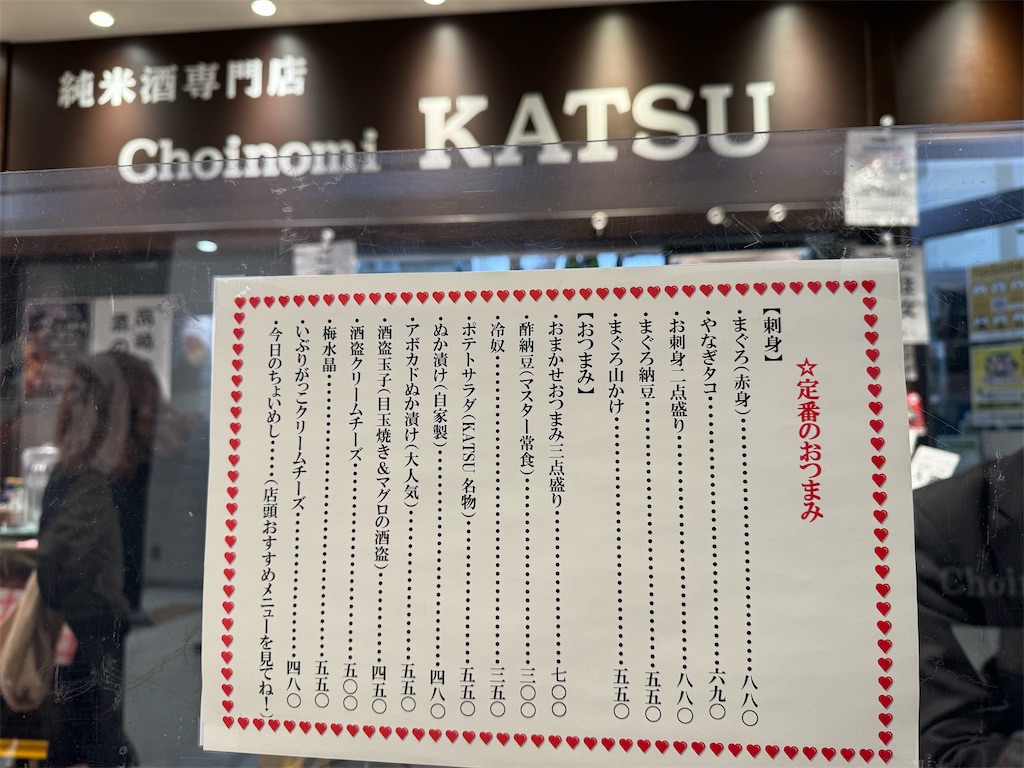 純米酒専門店
Choinomi KATSU
☆定番のおつまみ
【刺身】
・まぐろ(赤身)‥‥‥‥‥‥‥‥‥‥八八〇
・やなぎタコ‥‥‥‥‥‥‥‥‥‥六九〇
・お刺身二点盛り‥‥‥‥‥‥‥‥‥‥八八〇
・まぐろ納豆‥‥‥‥‥‥‥‥‥‥五五〇
・まぐろ山かけ‥‥‥‥‥‥‥‥‥‥五五〇
【おつまみ】
・おまかせおつまみ三点盛り‥‥‥‥‥‥七〇〇
・酢納豆(マスター常食)‥‥‥‥‥‥‥三〇〇
・冷奴‥‥‥‥‥‥‥‥‥‥‥‥三五〇
・ポテトサラダ(KATSU 名物)‥‥‥‥‥‥五五〇
・ぬか漬け(自家製)‥‥‥‥‥‥‥‥四八〇
・アボカドぬか漬け(大人気)‥‥‥‥‥‥五五〇
・酒盗玉子(目玉焼き&マグロの酒盗)‥‥‥‥四五〇
・酒盗クリームチーズ‥‥‥‥‥‥‥‥五〇〇
・梅水晶‥‥‥‥‥‥‥‥‥‥‥‥五五〇
・いぶりがっこクリームチーズ‥‥‥‥‥‥四八〇
・今日のちょいめし‥‥(店頭おすすめメニューを見てね!)
Choi